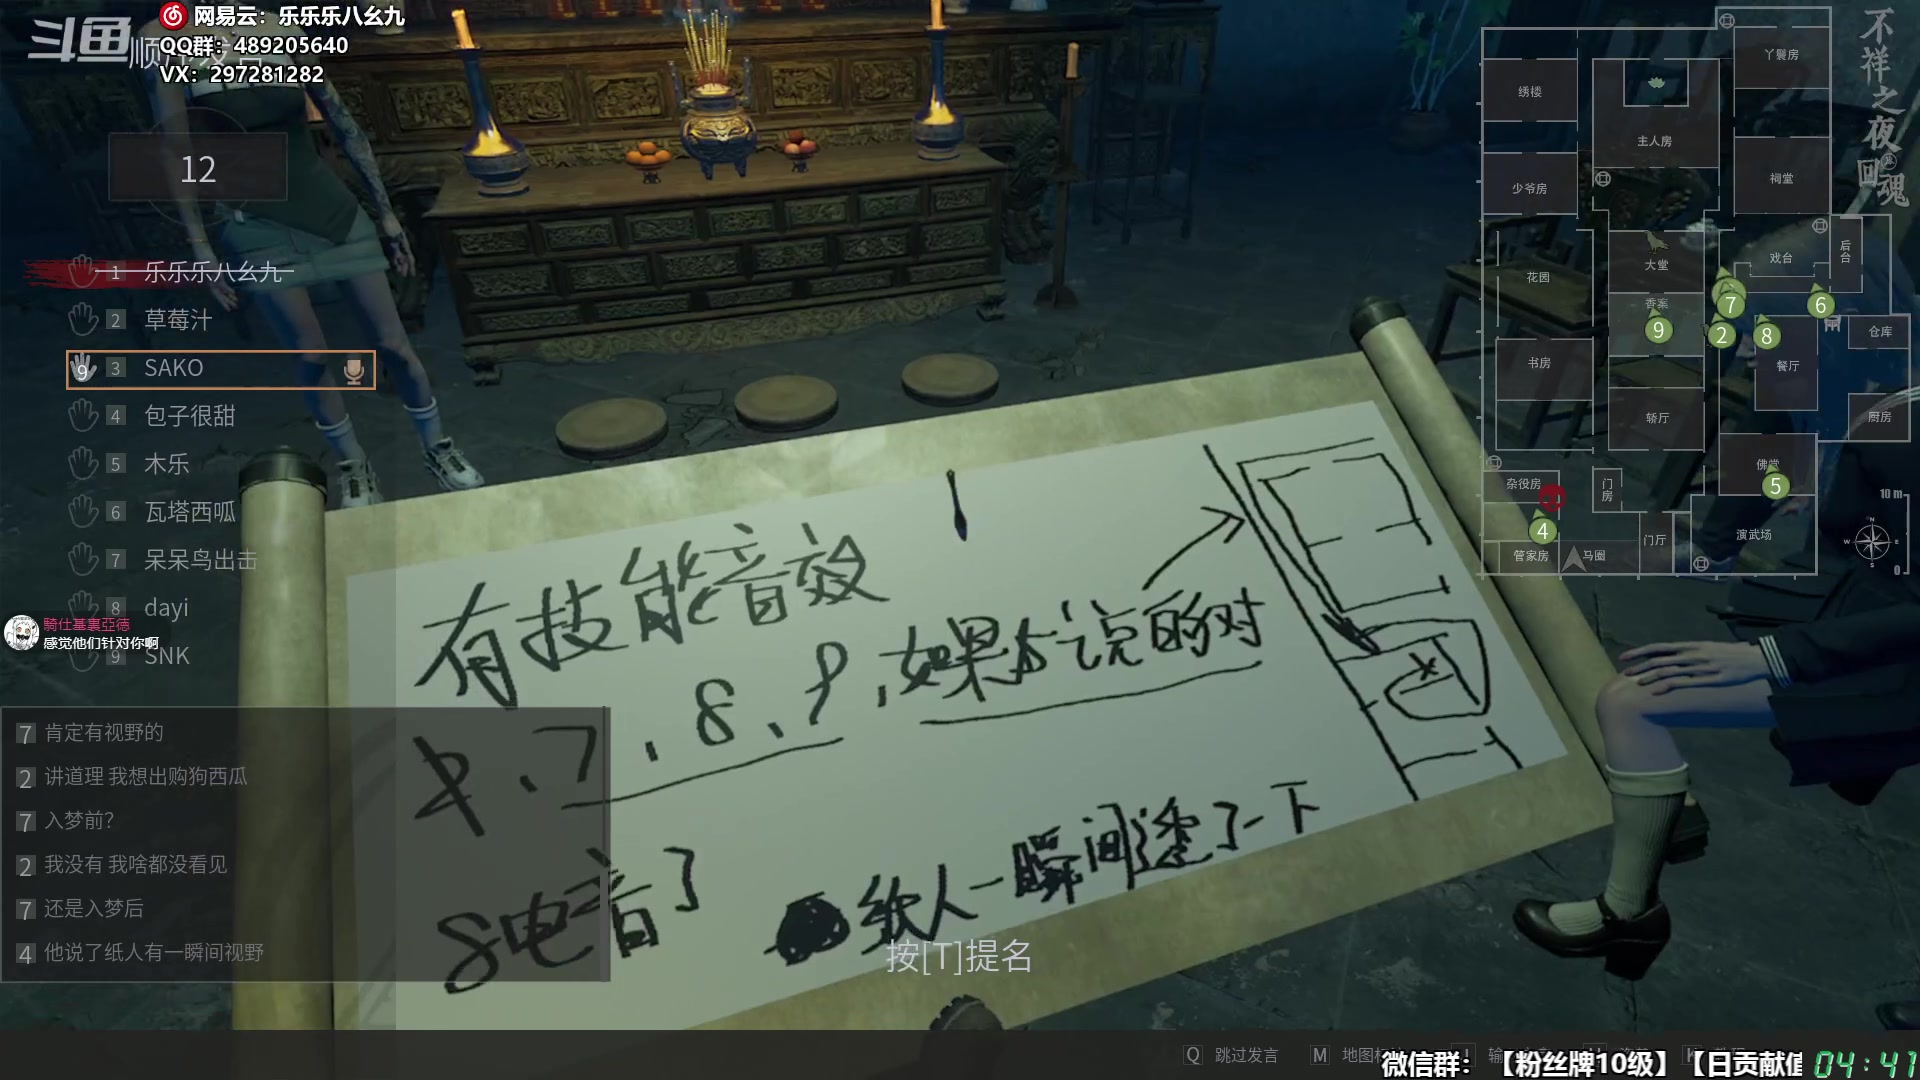 斗鱼
网易云：乐乐乐八幺九
QQ群：489205640
VX：297281282
12
1 乐乐乐八幺九
2 草莓汁
9 3 SAKO
4 包子很甜
5 木乐
6 瓦塔西呱
7 呆呆鸟出击
8 dayi
9 SNK
騎仕基裏亞德
感觉他们针对你啊
7 肯定有视野的
2 讲道理 我想出购狗西瓜
7 入梦前?
2 我没有 我啥都没看见
7 还是入梦后
4 他说了纸人有一瞬间视野
有技能音效
7、8、9，如果 说的对
8电音了
纸人一瞬间 了一下
按[T]提名
不祥之夜
回魂
丫鬟房
绣楼
主人房
少爷房
祠堂
后台
戏台
大堂
花园
香案
7
6
9
2
8
仓库
书房
餐厅
轿厅
厨房
佛堂
5
杂役房
门房
4
演武场
门厅
管家房
马圈
10 m
N
W
E
S
0
Q 跳过发言
M
微信群：【粉丝牌10级】【日贡献值
04:41